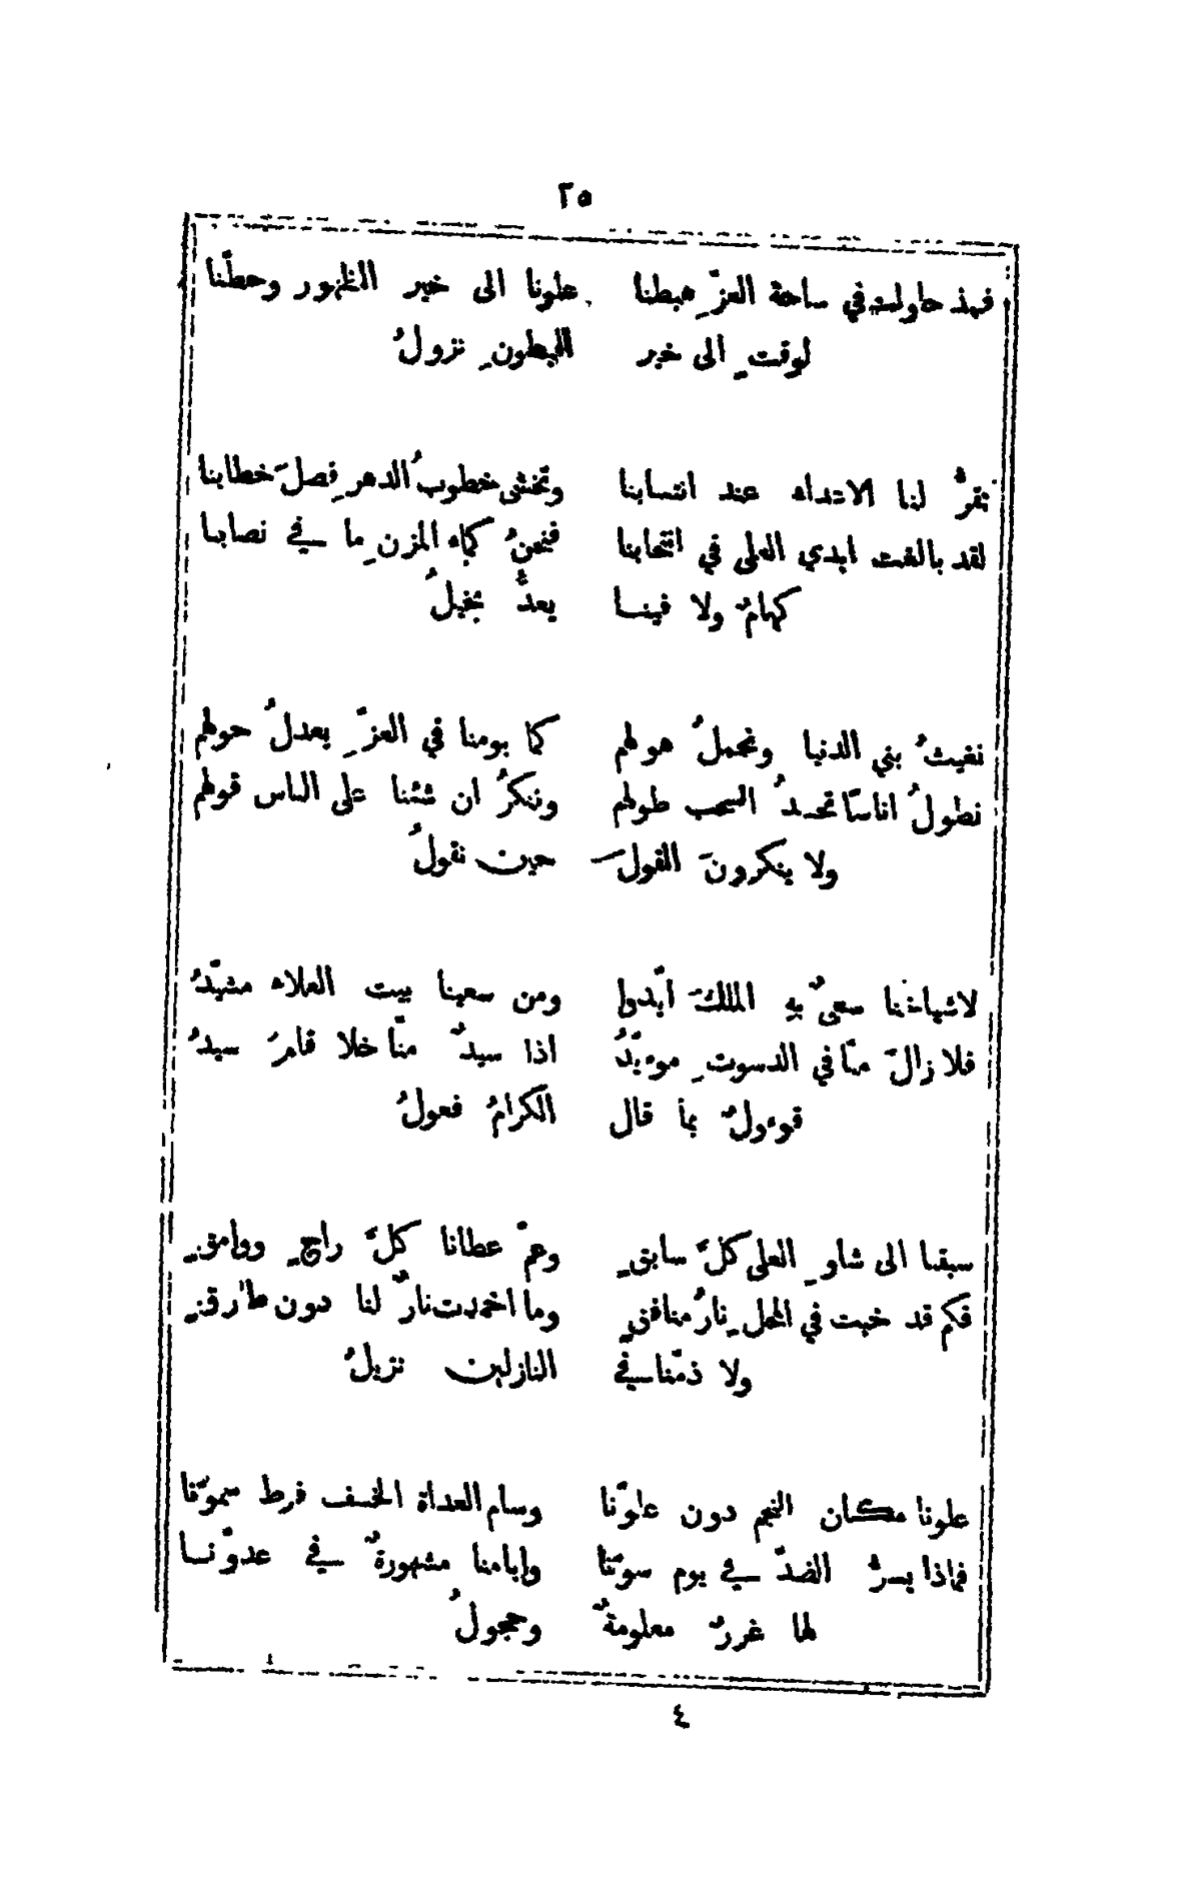 ٢٥
فمذ حاولت في ساحة العزِّ هبطنا علونا الى خير الظهور وحطّنا
لوقتٍ الى خير البطونِ نزولُ
تقرُّ لنا الاعداء عند انتسابنا وتخشى خطوبُ الدهرِ فصلَ خطابنا
لقد بالغت ايدي العلى في انتخابنا فنحنُ كماء المزنِ ما في نصابنا
كهامٌ ولا فينا يعدُّ بخيلُ
نغيثُ بني الدنيا ونحملُ هولهم كما يومنا في العزِّ يعدلُ حولهم
نطولُ اناسًا تحسدُ السحب طولهم وننكرُ ان شئنا على الناس قولهم
ولا ينكرونَ القولَ حين نقولُ
لاشياخنا سعيٌ بهِ الملكَ ايّدوا ومن سعينا بيت العلاء مشيّدُ
فلا زالَ منّا في الدسوتِ موءيّدُ اذا سيدٌ منّا خلا قامَ سيدُ
قوءولٌ بما قال الكرامُ فعولُ
سبقنا الى شاوِ العلى كلَّ سابقٍ وعمَّ عطانا كلَّ راجٍ ووامقٍ
فكم قد خبت في المحلِ نارُ منافقٍ وما اخمدت نارٌ لنا دون طارقٍ
ولا ذمّنا في النازلين نزيلُ
علونا مكان النجم دون علوّنا وسام العداة الخسف فرط سموّنا
فماذا يسرُّ الضدّ في يوم سوّنا وايامنا مشهورةٌ في عدوّنا
لها غررٌ معلومةٌ وحجولُ
٤